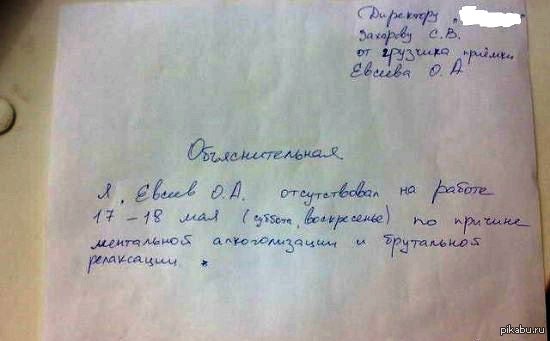 Директору „
Захарову С.В.
от грузчика приёмки
Евсеева О.А
Объяснительная
Я, Евсеев О.А. отсутствовал на работе
17-18 мая (суббота, воскресенье) по причине
ментальной алкоголизации и брутальной
релаксации. *
pikabu.ru